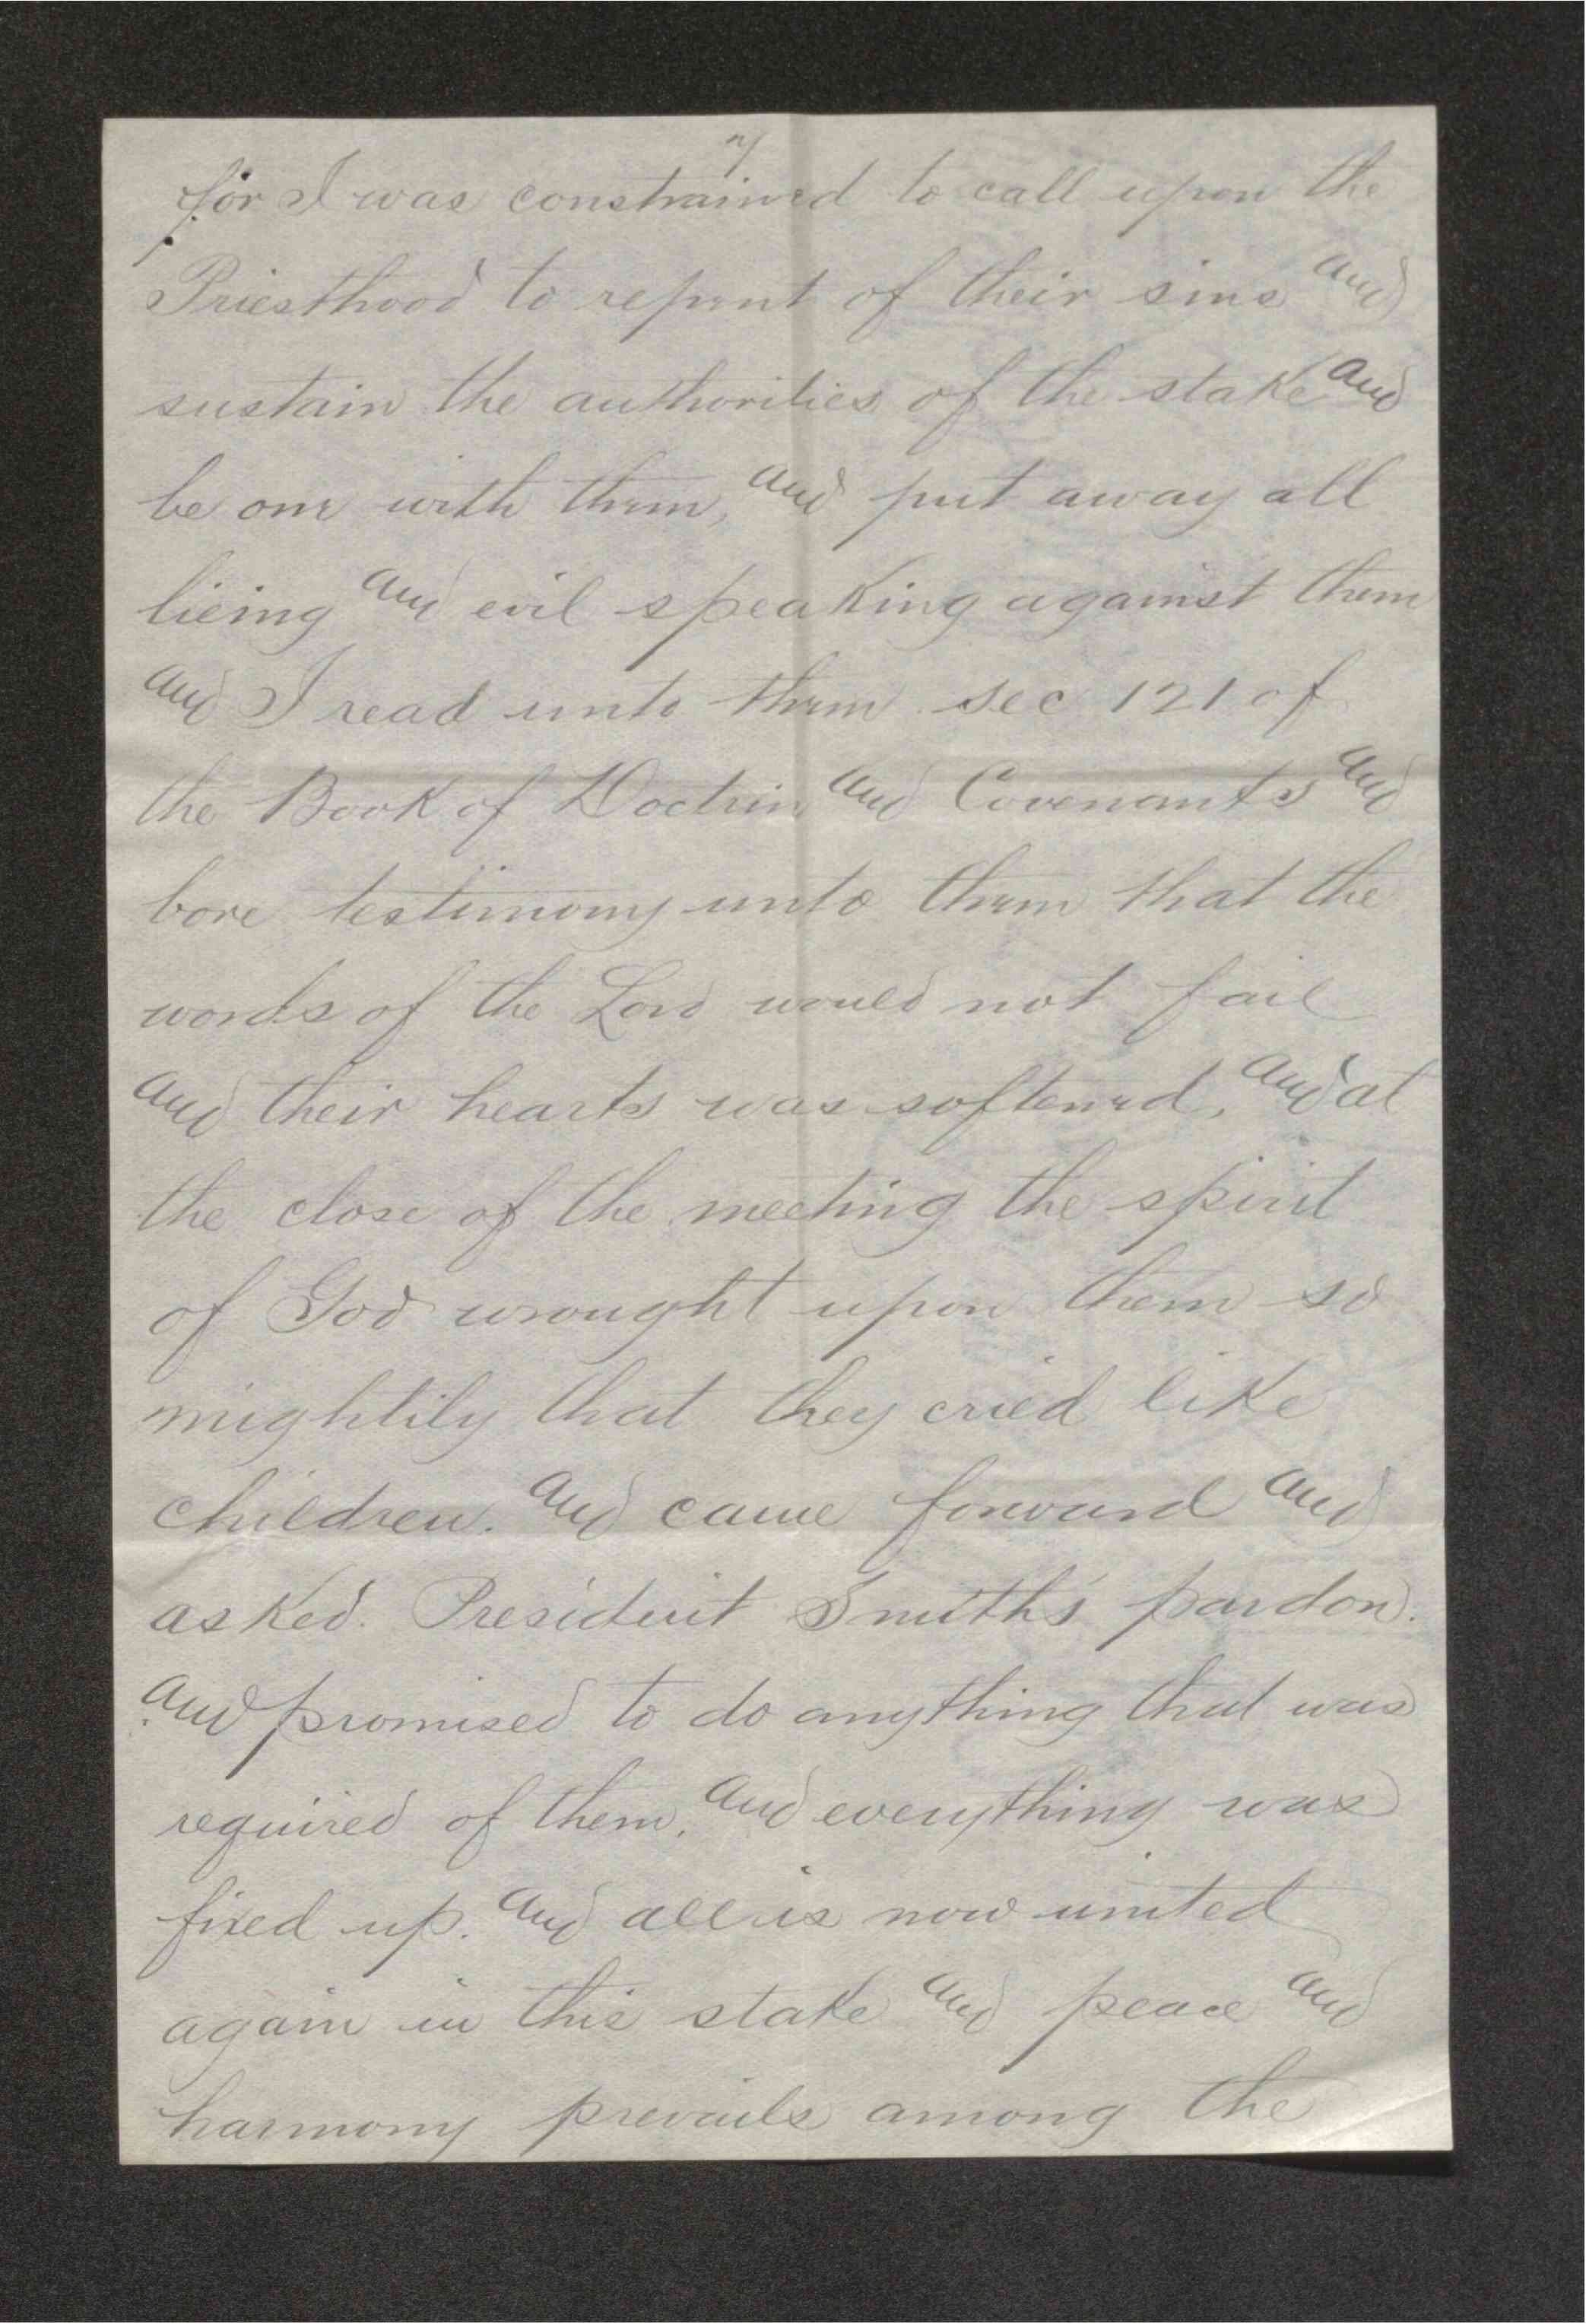 7
for I was constrained to call upon the
Priesthood to repent of their sins and
sustain the authorities of the stake and
be one with them, and put away all
lieing and evil speaking against them
and I read unto them sec 121 of
the Book of Doctrin and Covenants and
bore testimony unto them that the
words of the Lord would not fail
and their hearts was softened, and at
the close of the meeting the spirit
of God wrought upon them so
mightily that they cried like
children. and came forward and
asked. President Smith's pardon.
and promised to do anything that was
required of them. and everything was
fixed up. and all is now united
again in this stake and peace and
harmony prevails among the